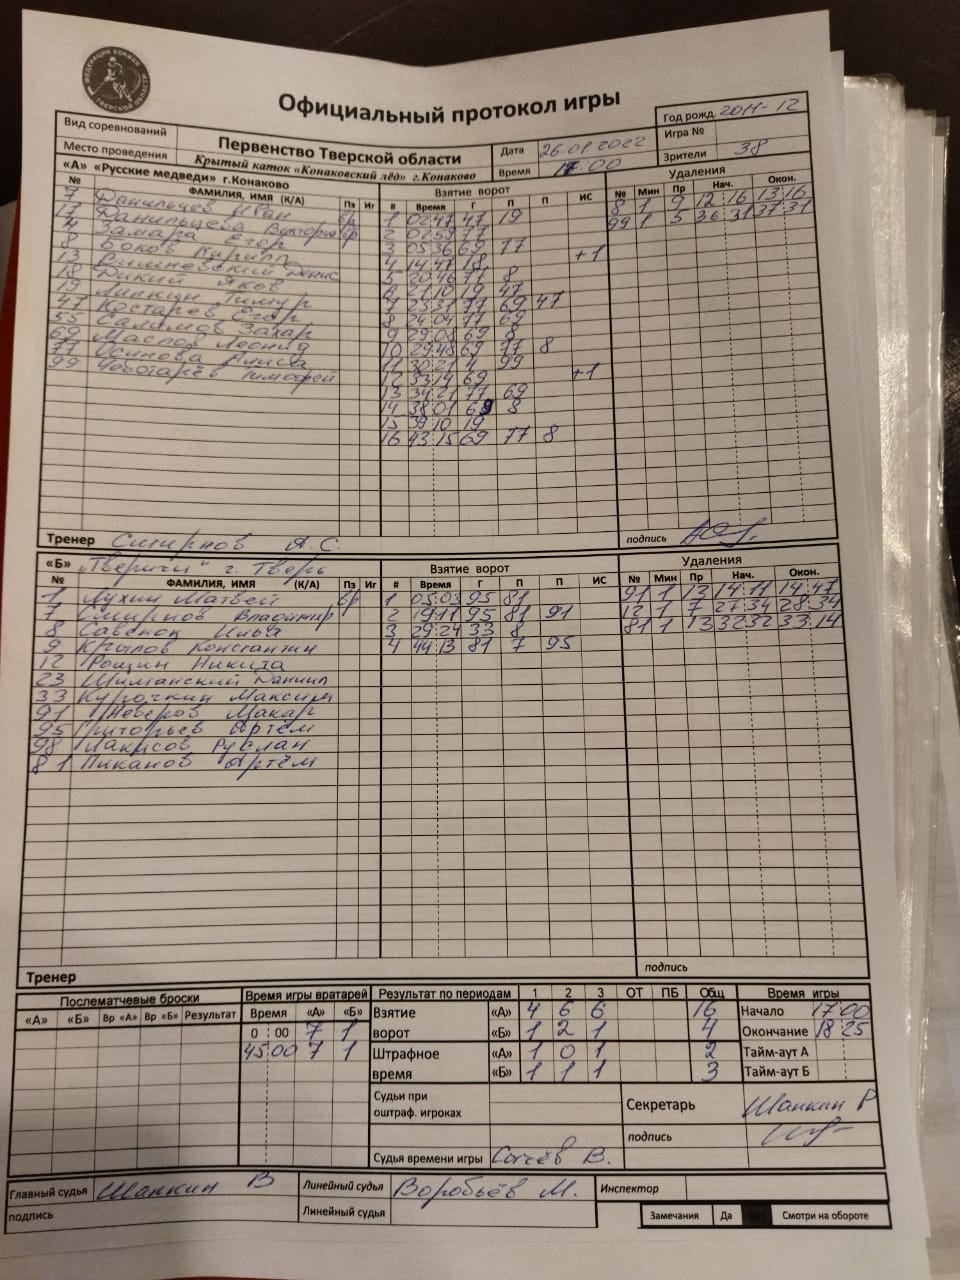 ФЕДЕРАЦИЯ ХОККЕЯ ТВЕРСКОЙ ОБЛАСТИ
Официальный протокол игры
Вид соревнований Первенство Тверской области Дата 26.01 2022 Год рожд. 2011-12
Игра №
Место проведения Крытый каток «Конаковский лёд» г.Конаково Время 17.00 Зрители 38
«А» «Русские медведи» г.Конаково Взятие ворот Удаления
№ ФАМИЛИЯ, ИМЯ (К/А) Пз Иг # Время Г П П ИС № Мин Пр Нач. Окон.
7 Данильцев Иван вр 1 02 47 47 19 8 1 9 12 16 13 16
17 Данильцева Виктория вр 2 02 59 77 99 1 5 36 31 37 31
4 Замара Егор 3 05 36 69 77
8 Боков Кирилл 4 14 47 18 +1
13 Денис 5 20 46 77 8
18 Дикий Яков 6 21 10 19 47
19 Липкин Тимур 7 23 31 77 69 47
47 Костарев Егор 8 24 04 77 69
55 Салимов Захар 9 29 08 69 8
69 Маслов Леонид 10 29 48 69 77 8
77 Осипова Алиса 11 30 21 4 99
99 Чеботарёв Тимофей 12 33 14 69 +1
13 34 21 77 69
14 38 01 69 8
15 39 10 19
16 43 15 69 77 8
Тренер Смирнов А.С. подпись
«Б» „Тверичи" г. Тверь Взятие ворот Удаления
№ ФАМИЛИЯ, ИМЯ (К/А) Пз Иг # Время Г П П ИС № Мин Пр Нач. Окон.
1 Лухин Матвей вр 1 05 03 95 81 91 1 13 14 11 14 47
7 Смирнов Владимир 2 19 11 95 81 91 12 1 7 27 34 28 34
8 Савенок Илья 3 29 24 33 8 81 1 13 32 32 33 14
9 Крылов Константин 4 44 13 81 7 95
12 Трощин Никита
23 Шиманский Даниил
33 Курочкин Максим
91 Неверов Макар
95 Григорьев Артём
98 Руслан
81 Пиканов Артём
Тренер подпись
Послематчевые броски Время игры вратарей Результат по периодам 1 2 3 ОТ ПБ Общ Время игры
«А» «Б» Вр «А» Вр «Б» Результат Время «А» «Б» Взятие «А» 4 6 6 16 Начало 17 00
0 00 7 1 ворот «Б» 1 2 1 4 Окончание 18 25
45 00 7 1 Штрафное «А» 1 0 1 2 Тайм-аут А
время «Б» 1 1 1 3 Тайм-аут Б
Судьи при оштраф. игроках Секретарь Шапкин Р
подпись
Судья времени игры Сычёв В.
Главный судья Шапкин В Линейный судья Воробьёв М. Инспектор
подпись Линейный судья Замечания Да Смотри на обороте